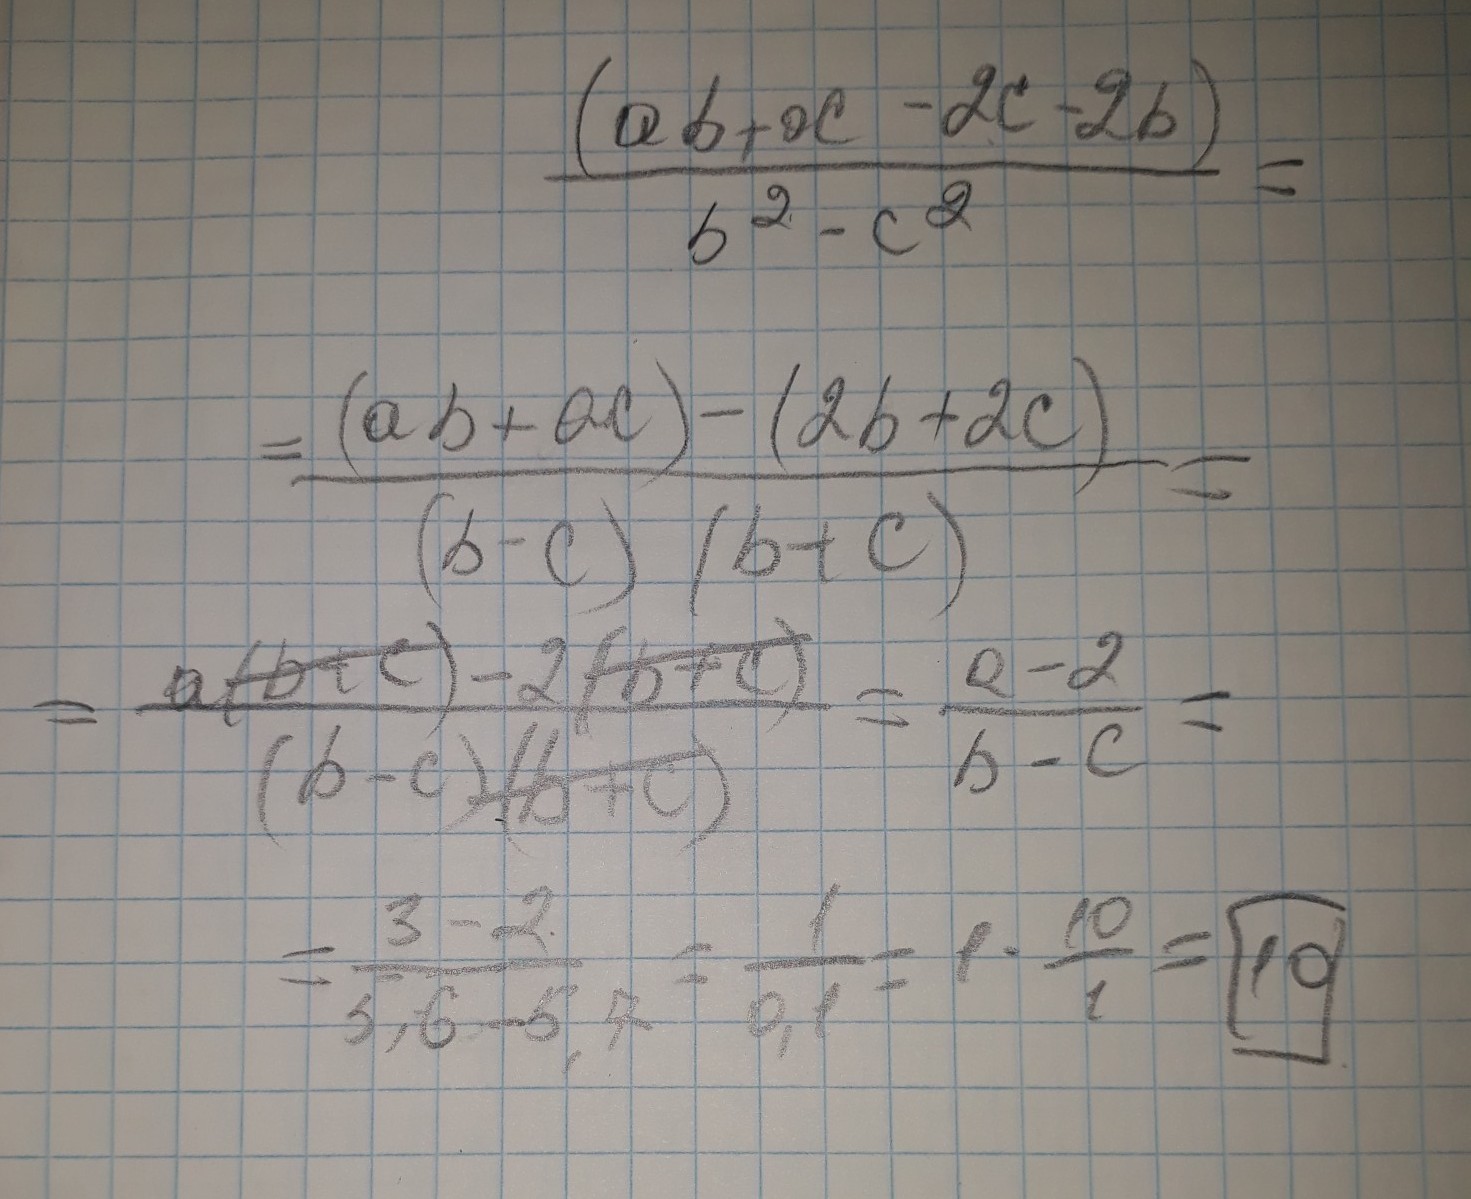 (ab+ac -2c-2b)/(b²-c²) =
= ((ab+ac)-(2b+2c))/((b-c)(b+c)) =
= (a(b+c)-2(b+c))/((b-c)(b+c)) = (a-2)/(b-c) =
= (3-2)/(5,6-5,7) = 1/0,1 = 1·10/1 = 10